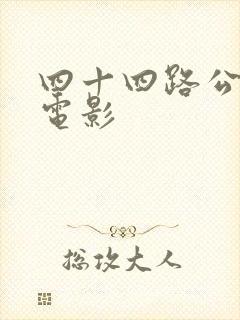 四十四路公
電影
总攻大人